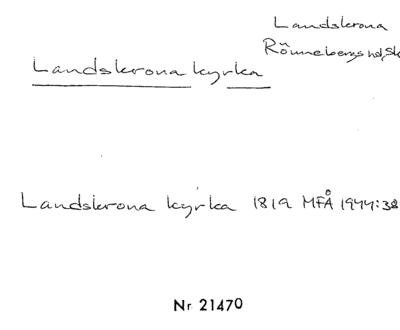 Landskrona
Rönnebergs hd, Sk
Landskrona kyrka
Landskrona kyrka 1819 MFÅ 1944:38
Nr 21470